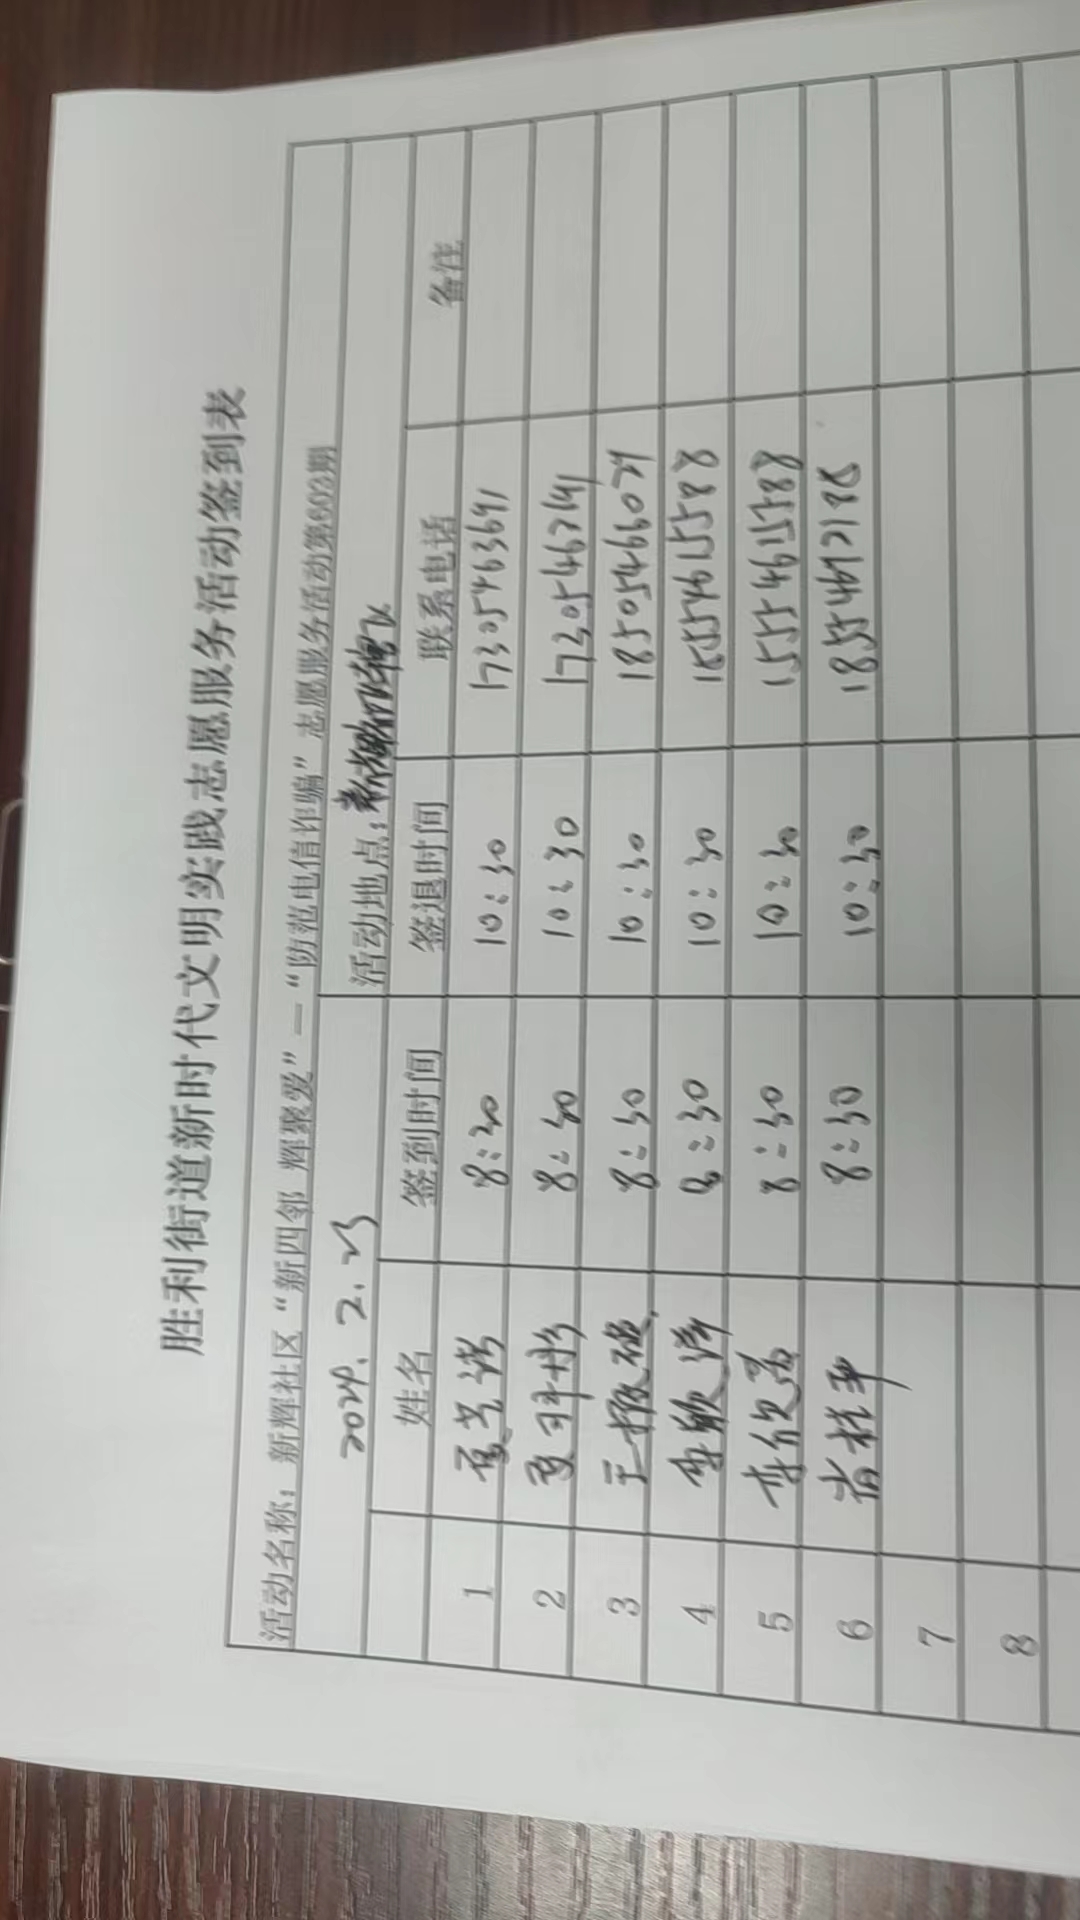 胜利街道新时代文明实践志愿服务活动签到表
活动名称：新辉社区“新四邻 辉聚爱”—“防范电信诈骗”志愿服务活动第603期
2024.2.23 活动地点：新辉
姓名 签到时间 签退时间 联系电话 备注
1 8:30 10:30 17305463691
2 8:30 10:30 17305467191
3 王振硕 8:30 10:30 18505466079
4 李欣洋 8:30 10:30 15554615588
5 李欣孟 8:30 10:30 15554615788
6 8:30 10:30 18554612188
7
8